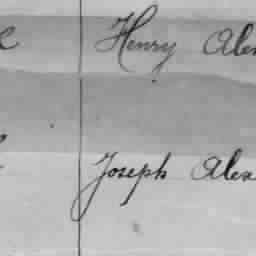 Henry Alex
Joseph Alex